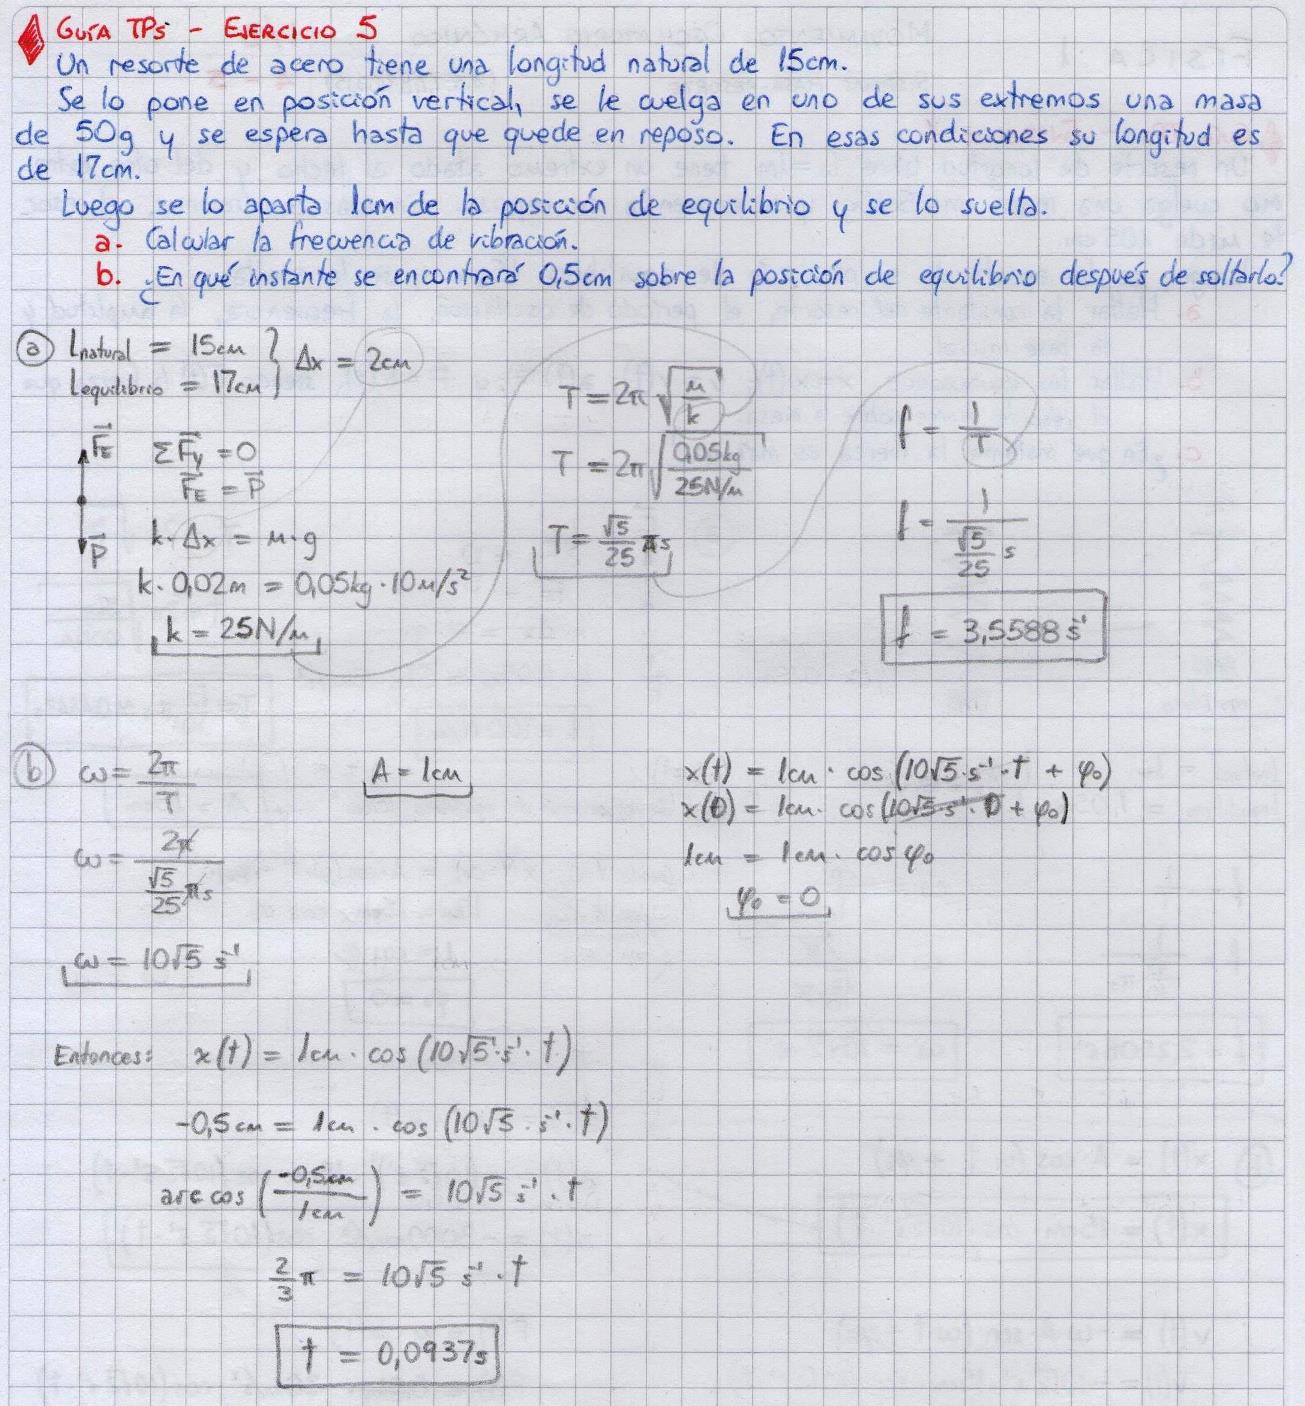 GUÍA TPs - EJERCICIO 5
Un resorte de acero tiene una longitud natural de 15cm.
Se lo pone en posición vertical, se le cuelga en uno de sus extremos una masa
de 50g y se espera hasta que quede en reposo. En esas condiciones su longitud es
de 17cm.
Luego se lo aparta 1cm de la posición de equilibrio y se lo suelta.
a. Calcular la frecuencia de vibración.
b. ¿En qué instante se encontrará 0,5cm sobre la posición de equilibrio después de soltarlo?
a
Lnatural = 15cm
Lequilibrio = 17cm } Δx = 2cm
F⃗E
P⃗
ΣF⃗y = 0
F⃗E = P⃗
k · Δx = m · g
k · 0,02m = 0,05kg · 10m/s²
k = 25N/m
T = 2π √(m/k)
T = 2π √(0,05kg / 25N/m)
T = √5/25 π s
f = 1/T
f = 1 / (√5/25 s)
f = 3,5588 s⁻¹
b
ω = 2π/T
ω = 2π / (√5/25 π s)
ω = 10√5 s⁻¹
A = 1cm
x(t) = 1cm · cos(10√5 · s⁻¹ · t + φ₀)
x(0) = 1cm · cos(10√5 · s⁻¹ · 0 + φ₀)
1cm = 1cm · cos φ₀
φ₀ = 0
Entonces: x(t) = 1cm · cos(10√5 · s⁻¹ · t)
-0,5cm = 1cm · cos(10√5 · s⁻¹ · t)
arc cos (-0,5cm / 1cm) = 10√5 s⁻¹ · t
2/3 π = 10√5 s⁻¹ · t
t = 0,0937s